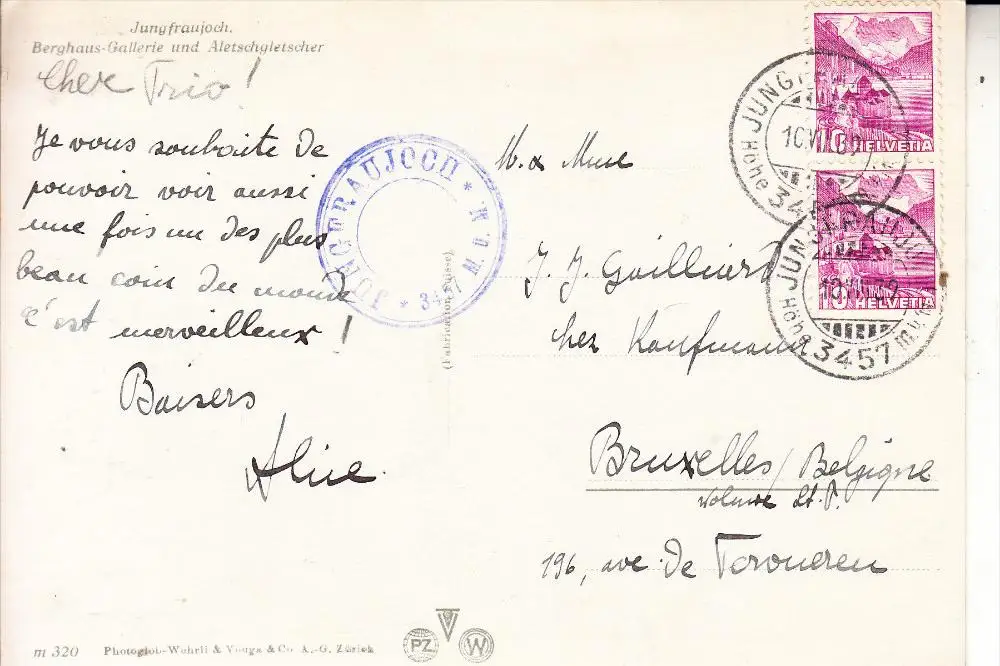 Jungfraujoch.
Berghaus-Gallerie und Aletschgletscher
Cher Trio!
Je vous souhaite de
pouvoir voir aussi
une fois un des plus
beau coin du monde
c'est merveilleux!
Baisers
Alice.
JUNGFRAUJOCH * 3457 M.Ü.M. *
(Fabrication Suisse)
M. & Mme
J. J. Gailliard
chez Kaufmann
Bruxelles / Belgique
Woluwe St. P.
196, ave. de Tervueren
10 HELVETIA
10 HELVETIA
JUNGFRAUJOCH
Höhe 3457 m.ü.M.
m 320 Photoglob-Wehrli & Vouga & Co. A.-G. Zürich
PZ
W